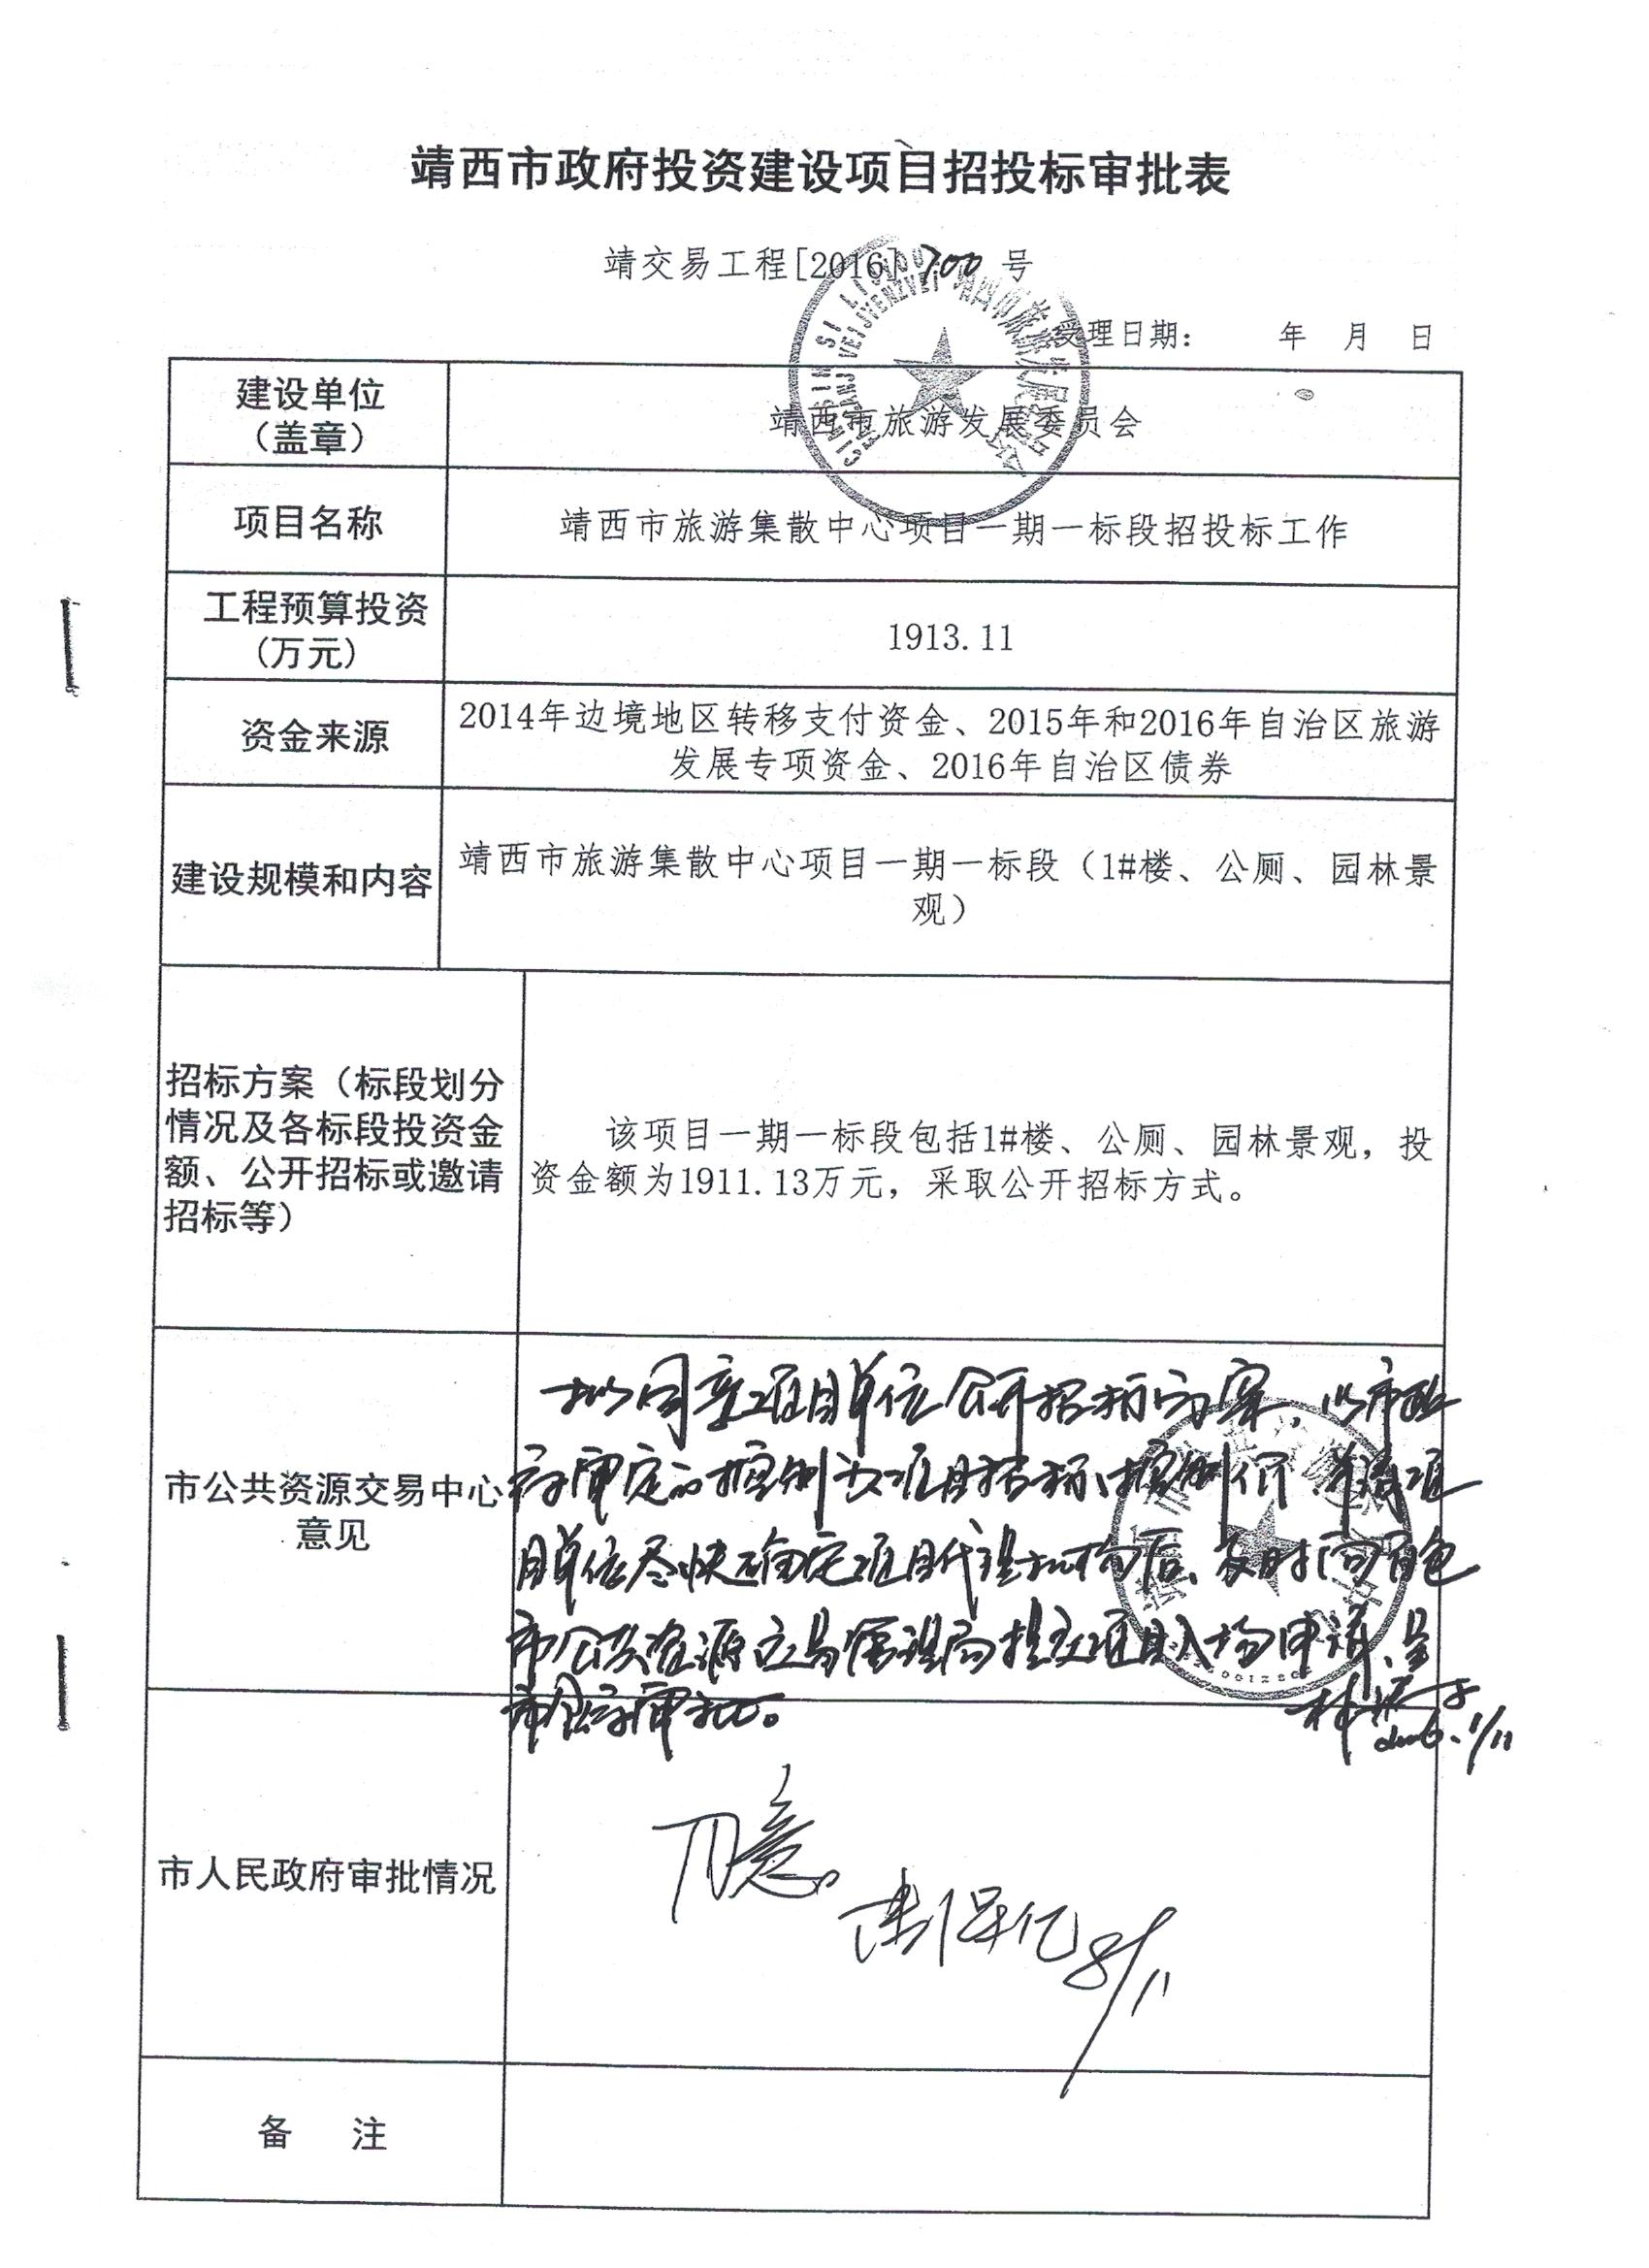 靖西市政府投资建设项目招投标审批表
靖交易工程[2016] 700 号
受理日期： 年 月 日
建设单位
（盖章）
靖西市旅游发展委员会
项目名称
靖西市旅游集散中心项目一期一标段招投标工作
工程预算投资
(万元)
1913.11
资金来源
2014年边境地区转移支付资金、2015年和2016年自治区旅游
发展专项资金、2016年自治区债券
建设规模和内容
靖西市旅游集散中心项目一期一标段（1#楼、公厕、园林景
观）
招标方案（标段划分
情况及各标段投资金
额、公开招标或邀请
招标等）
该项目一期一标段包括1#楼、公厕、园林景观，投
资金额为1911.13万元，采取公开招标方式。
市公共资源交易中心
意见
拟同意项目单位公开招标方案，以市政
府审定的控制为项目招标控制价 并请项
目单位尽快确定项目代理机构后、及时向百色
市公共资源交易管理局提交项目入场申请、呈
市政府审批。
2016.1/11
市人民政府审批情况
同意。
8/11
备 注